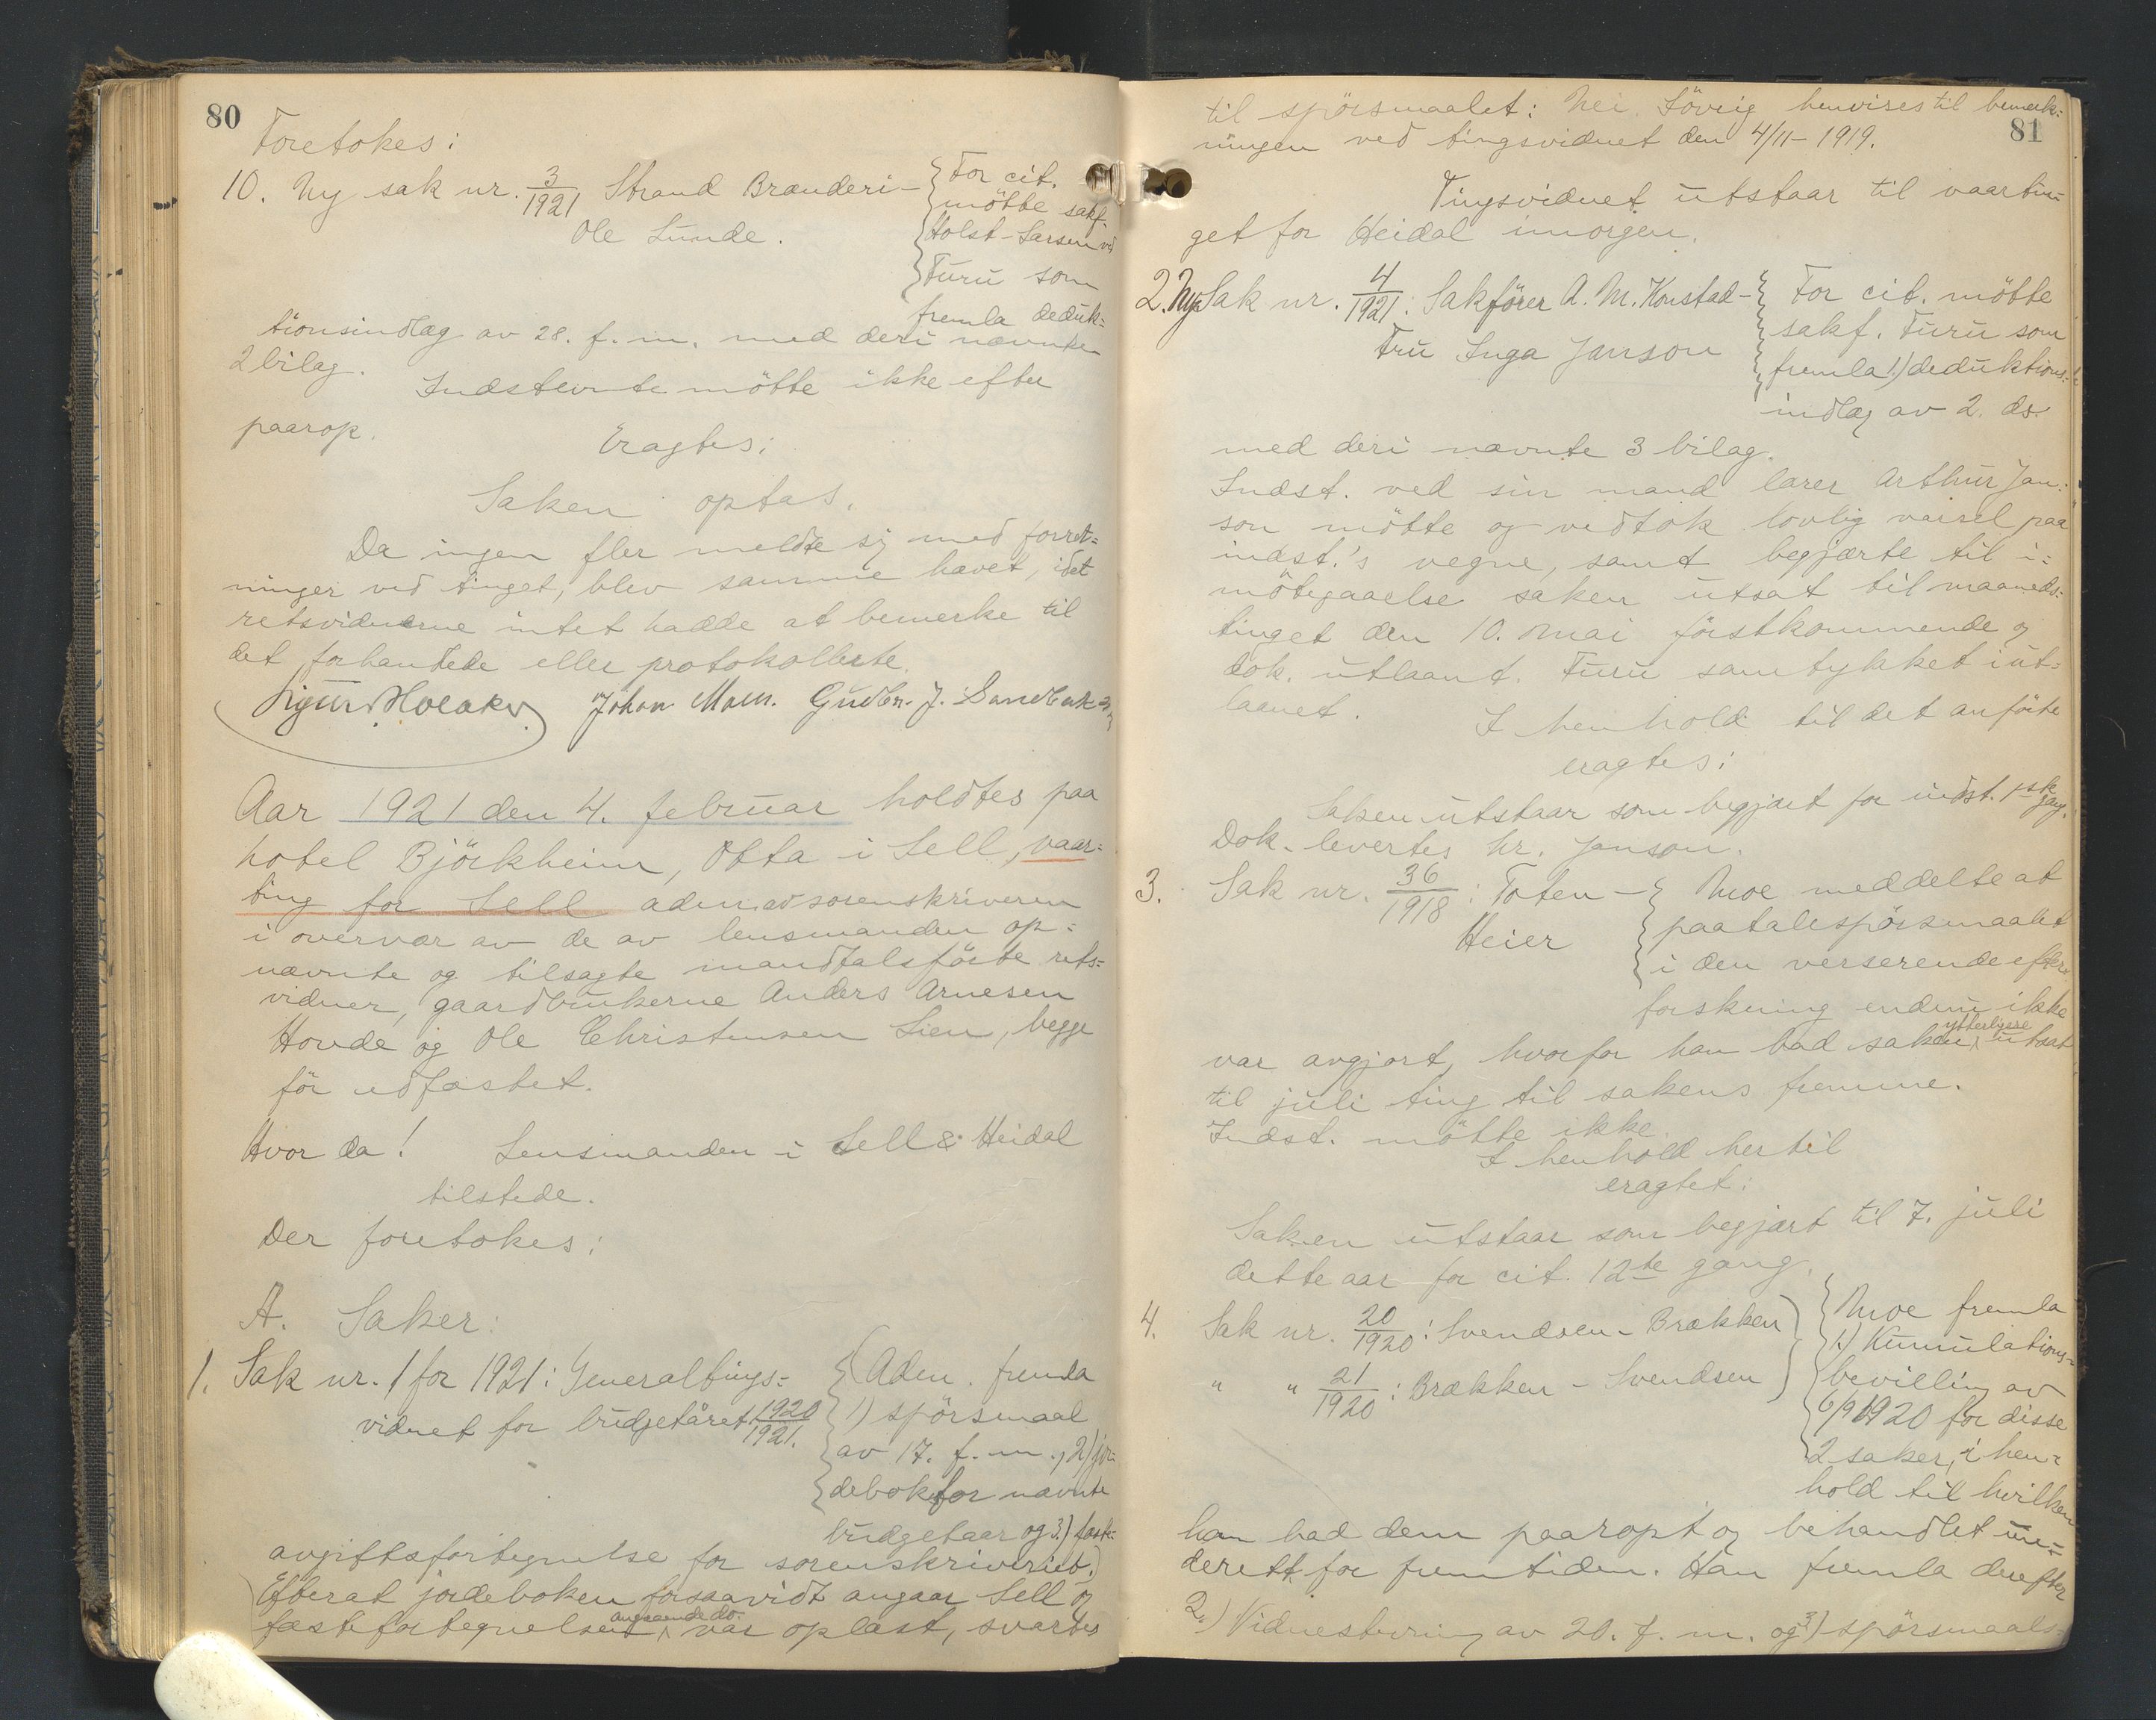 80
Foretokes:
10. Ny sak nr. 3/1921 Strand Brænderi - For cit.
Ole Lunde. møtte sakf.
Holst-Larsen ved
Furu som
fremla deduk=
tionsindlæg av 28. f. m. med deri nævnte
2 bilag.
Indstevnte møtte ikke efter
paarop.
Eragtes:
Saken optas.
Da ingen fler meldte sig med forret=
ninger ved tinget, blev samme hævet, idet
retsvidnerne intet hadde at bemerke til
det forhantlede eller protokollerte.
Johan Moen. Gudbr. J. Sandbak
Aar 1921 den 4. februar holdtes paa
hotel Björkheim, Otta i Sell, vaar=
ting for Sell adm. av sorenskriveren
i overvær av de av lensmanden op=
nævnte og tilsagte mandtalsførte rets=
vidner, gaardbrukerne Anders Arnesen
Hovde og Ole Christensen Lien, begge
før edfæstet.
Hvor da! Lensmanden i Sell & Heidal
tilstede.
Der foretokes:
A. Saker:
1. Sak nr. 1 for 1921: Generaltings=
vidnet for budgetåret 1920/1921.
Adm. fremla
1) spörsmaal
av 17. f. m., 2) jor=
debok for nævnte
budgetaar og 3.) fæste=
avgiftsfortegnelse for sorenskriveriet.
Efterat jordeboken forsaavidt angaar Sell og
fæstefortegnelsen angaaende do. var oplæst, svartes
81
til spörsmaalet: Nei. Iøvrig henvises til bemerk=
ningen ved tingsvidnet den 4/11-1919.
Tingsvidnet utstaar til vaartin=
get for Heidal imorgen.
2. Ny Sak nr. 4/1921: Sakfører A. M. Konstad -
Fru Inga Janson
For cit. møtte
sakf. Furu som
fremla 1) deduktions=
indlæg av 2. ds.
med deri nævnte 3 bilag.
Indst. ved sin mand lærer Arthur Jan=
son møtte og vedtok lovlig varsel paa
indst.'s vegne, samt begjærte til i=
møtegaaelse saken utsat til maaneds=
tinget den 10. mai førstkommende og
dok. utlaant. Furu samtykket i ut=
laanet.
I henhold til det anførte
eragtes:
Saken utstaar som begjært for indst. 1ste gang.
Dok. levertes hr. Janson.
3. Sak nr. 36/1918: Toten -
Heier
Moe meddelte at
paatalespørsmaalet
i den verserende efter=
forskning endnu ikke
var avgjort, hvorfor han bad saken ytterligere utsat
til juli ting til sakens fremme.
Indst. møtte ikke.
I henhold hertil
eragtet:
Saken utstaar som begjært til 7. juli
dette aar for cit. 12te gang.
4. Sak nr. 20/1920: Svendsen - Brækken
" " 21/1920: Brækken - Svendsen
Moe fremla
1.) Kumulations=
bevilling av
6/9 1920 for disse
2 saker, i hen=
hold til hvilken
han bad dem paaropt og behandlet un=
derett for fremtiden. Han fremla derefter
2.) Vidnestevning av 20. f. m. og 3) spørsmaals=